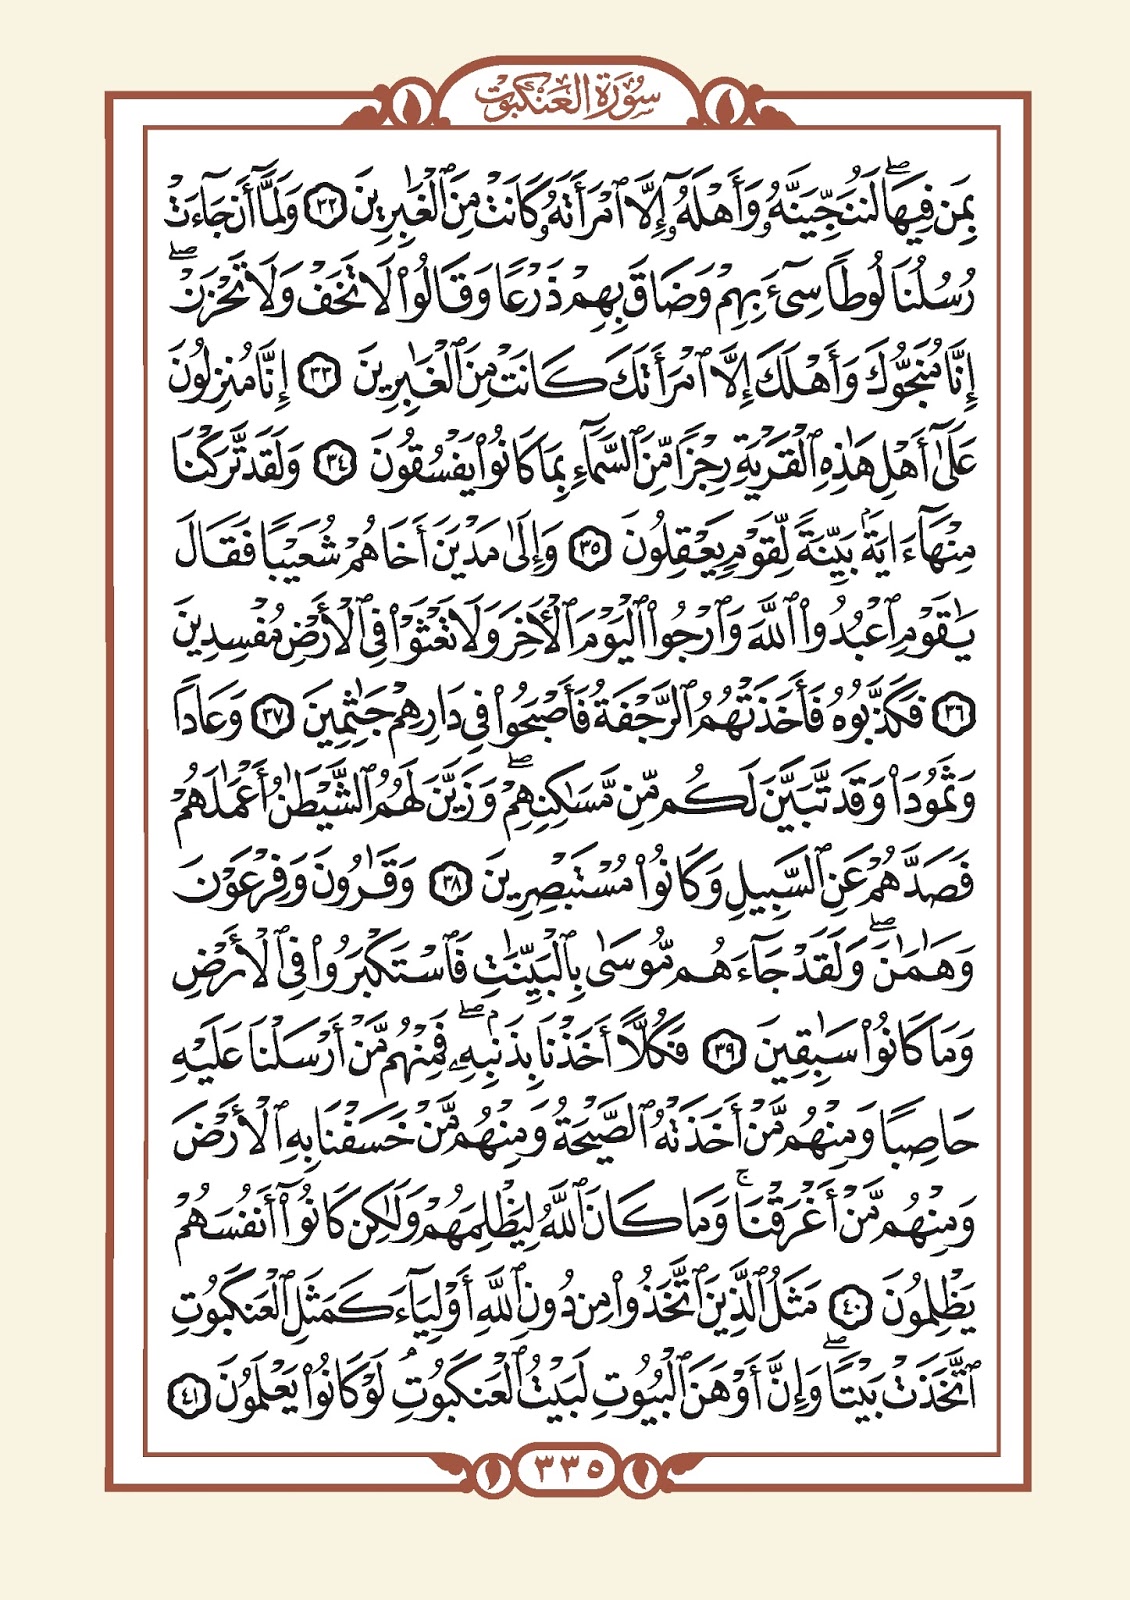 سُورَةُ الْعَنْكَبُوتِ
بِمَن فِيهَا ۖ لَنُنَجِّيَنَّهُۥ وَأَهْلَهُۥٓ إِلَّا ٱمْرَأَتَهُۥ كَانَتْ مِنَ ٱلْغَٰبِرِينَ ٣٢ وَلَمَّآ أَن جَآءَتْ
رُسُلُنَا لُوطًا سِىٓءَ بِهِمْ وَضَاقَ بِهِمْ ذَرْعًا وَقَالُوا۟ لَا تَخَفْ وَلَا تَحْزَنْ ۖ
إِنَّا مُنَجُّوكَ وَأَهْلَكَ إِلَّا ٱمْرَأَتَكَ كَانَتْ مِنَ ٱلْغَٰبِرِينَ ٣٣ إِنَّا مُنزِلُونَ
عَلَىٰٓ أَهْلِ هَٰذِهِ ٱلْقَرْيَةِ رِجْزًا مِّنَ ٱلسَّمَآءِ بِمَا كَانُوا۟ يَفْسُقُونَ ٣٤ وَلَقَد تَّرَكْنَا
مِنْهَآ ءَايَةًۢ بَيِّنَةً لِّقَوْمٍ يَعْقِلُونَ ٣٥ وَإِلَىٰ مَدْيَنَ أَخَاهُمْ شُعَيْبًا فَقَالَ
يَٰقَوْمِ ٱعْبُدُوا۟ ٱللَّهَ وَٱرْجُوا۟ ٱلْيَوْمَ ٱلْءَاخِرَ وَلَا تَعْثَوْا۟ فِى ٱلْأَرْضِ مُفْسِدِينَ
٣٦ فَكَذَّبُوهُ فَأَخَذَتْهُمُ ٱلرَّجْفَةُ فَأَصْبَحُوا۟ فِى دَارِهِمْ جَٰثِمِينَ ٣٧ وَعَادًا
وَثَمُودَا۟ وَقَد تَّبَيَّنَ لَكُم مِّن مَّسَٰكِنِهِمْ ۖ وَزَيَّنَ لَهُمُ ٱلشَّيْطَٰنُ أَعْمَٰلَهُمْ
فَصَدَّهُمْ عَنِ ٱلسَّبِيلِ وَكَانُوا۟ مُسْتَبْصِرِينَ ٣٨ وَقَٰرُونَ وَفِرْعَوْنَ
وَهَٰمَٰنَ ۖ وَلَقَدْ جَآءَهُم مُّوسَىٰ بِٱلْبَيِّنَٰتِ فَٱسْتَكْبَرُوا۟ فِى ٱلْأَرْضِ
وَمَا كَانُوا۟ سَٰبِقِينَ ٣٩ فَكُلًّا أَخَذْنَا بِذَنۢبِهِۦ ۖ فَمِنْهُم مَّنْ أَرْسَلْنَا عَلَيْهِ
حَاصِبًا وَمِنْهُم مَّنْ أَخَذَتْهُ ٱلصَّيْحَةُ وَمِنْهُم مَّنْ خَسَفْنَا بِهِ ٱلْأَرْضَ
وَمِنْهُم مَّنْ أَغْرَقْنَا ۚ وَمَا كَانَ ٱللَّهُ لِيَظْلِمَهُمْ وَلَٰكِن كَانُوٓا۟ أَنفُسَهُمْ
يَظْلِمُونَ ٤٠ مَثَلُ ٱلَّذِينَ ٱتَّخَذُوا۟ مِن دُونِ ٱللَّهِ أَوْلِيَآءَ كَمَثَلِ ٱلْعَنكَبُوتِ
ٱتَّخَذَتْ بَيْتًا ۖ وَإِنَّ أَوْهَنَ ٱلْبُيُوتِ لَبَيْتُ ٱلْعَنكَبُوتِ ۘ لَوْ كَانُوا۟ يَعْلَمُونَ ٤١
٣٣٥